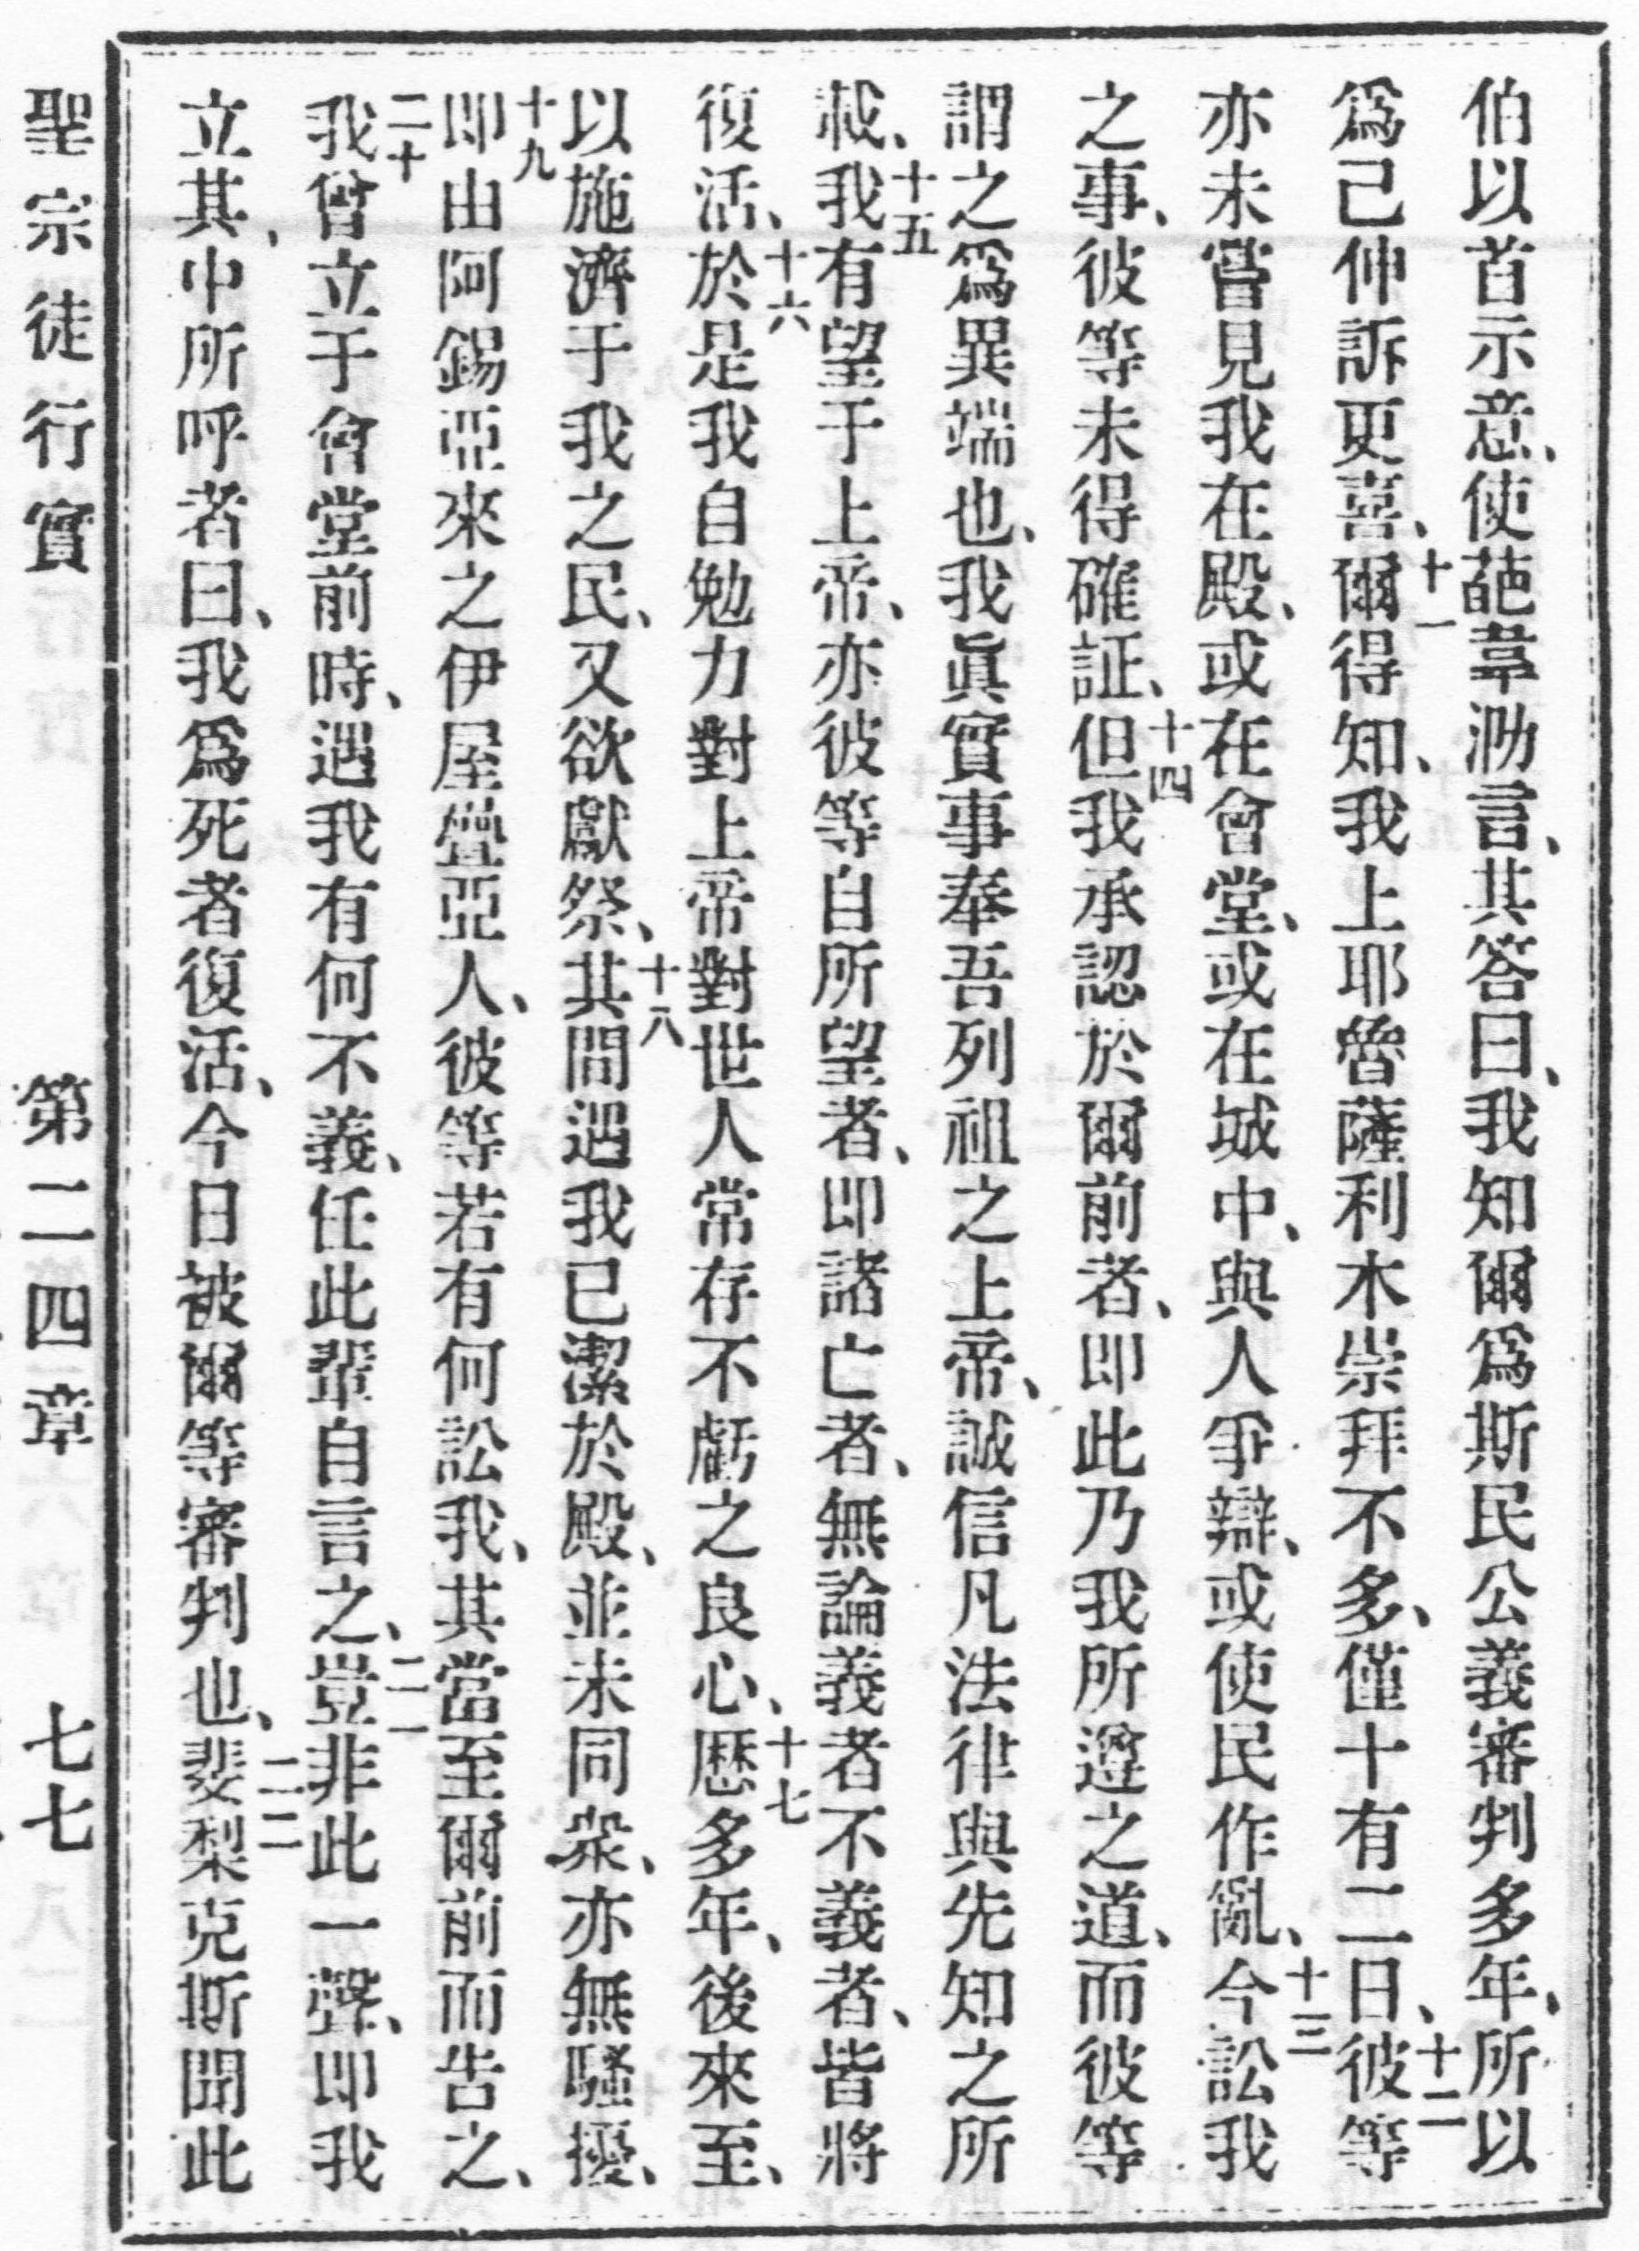 伯以首示意、使葩韋泐言、其答曰、我知爾爲斯民公義審判多年、所以
爲己伸訴更喜、十一爾得知、我上耶魯薩利木崇拜不多、僅十有二日、十二彼等
亦未嘗見我在殿、或在會堂、或在城中、與人爭辯、或使民作亂、十三今訟我
之事、彼等未得確証、十四但我承認於爾前者、即此乃我所遵之道、而彼等
謂之爲異端也、我眞實事奉吾列祖之上帝、誠信凡法律與先知之所
載、十五我有望于上帝、亦彼等自所望者、即諸亡者、無論義者不義者、皆將
復活、十六於是我自勉力對上帝對世人常存不虧之良心、十七歷多年、後來至、
以施濟于我之民、又欲獻祭、十八其間遇我已潔於殿、並未同衆、亦無騷擾、
十九即由阿錫亞來之伊屋疊亞人、彼等若有何訟我、其當至爾前而告之、
二十我曾立于會堂前時、遇我有何不義、任此輩自言之、二一豈非此一聲、即我
立其、中所呼者曰、我爲死者復活、今日被爾等審判也、二二斐梨克斯聞此
聖宗徒行實 第二四章 七七